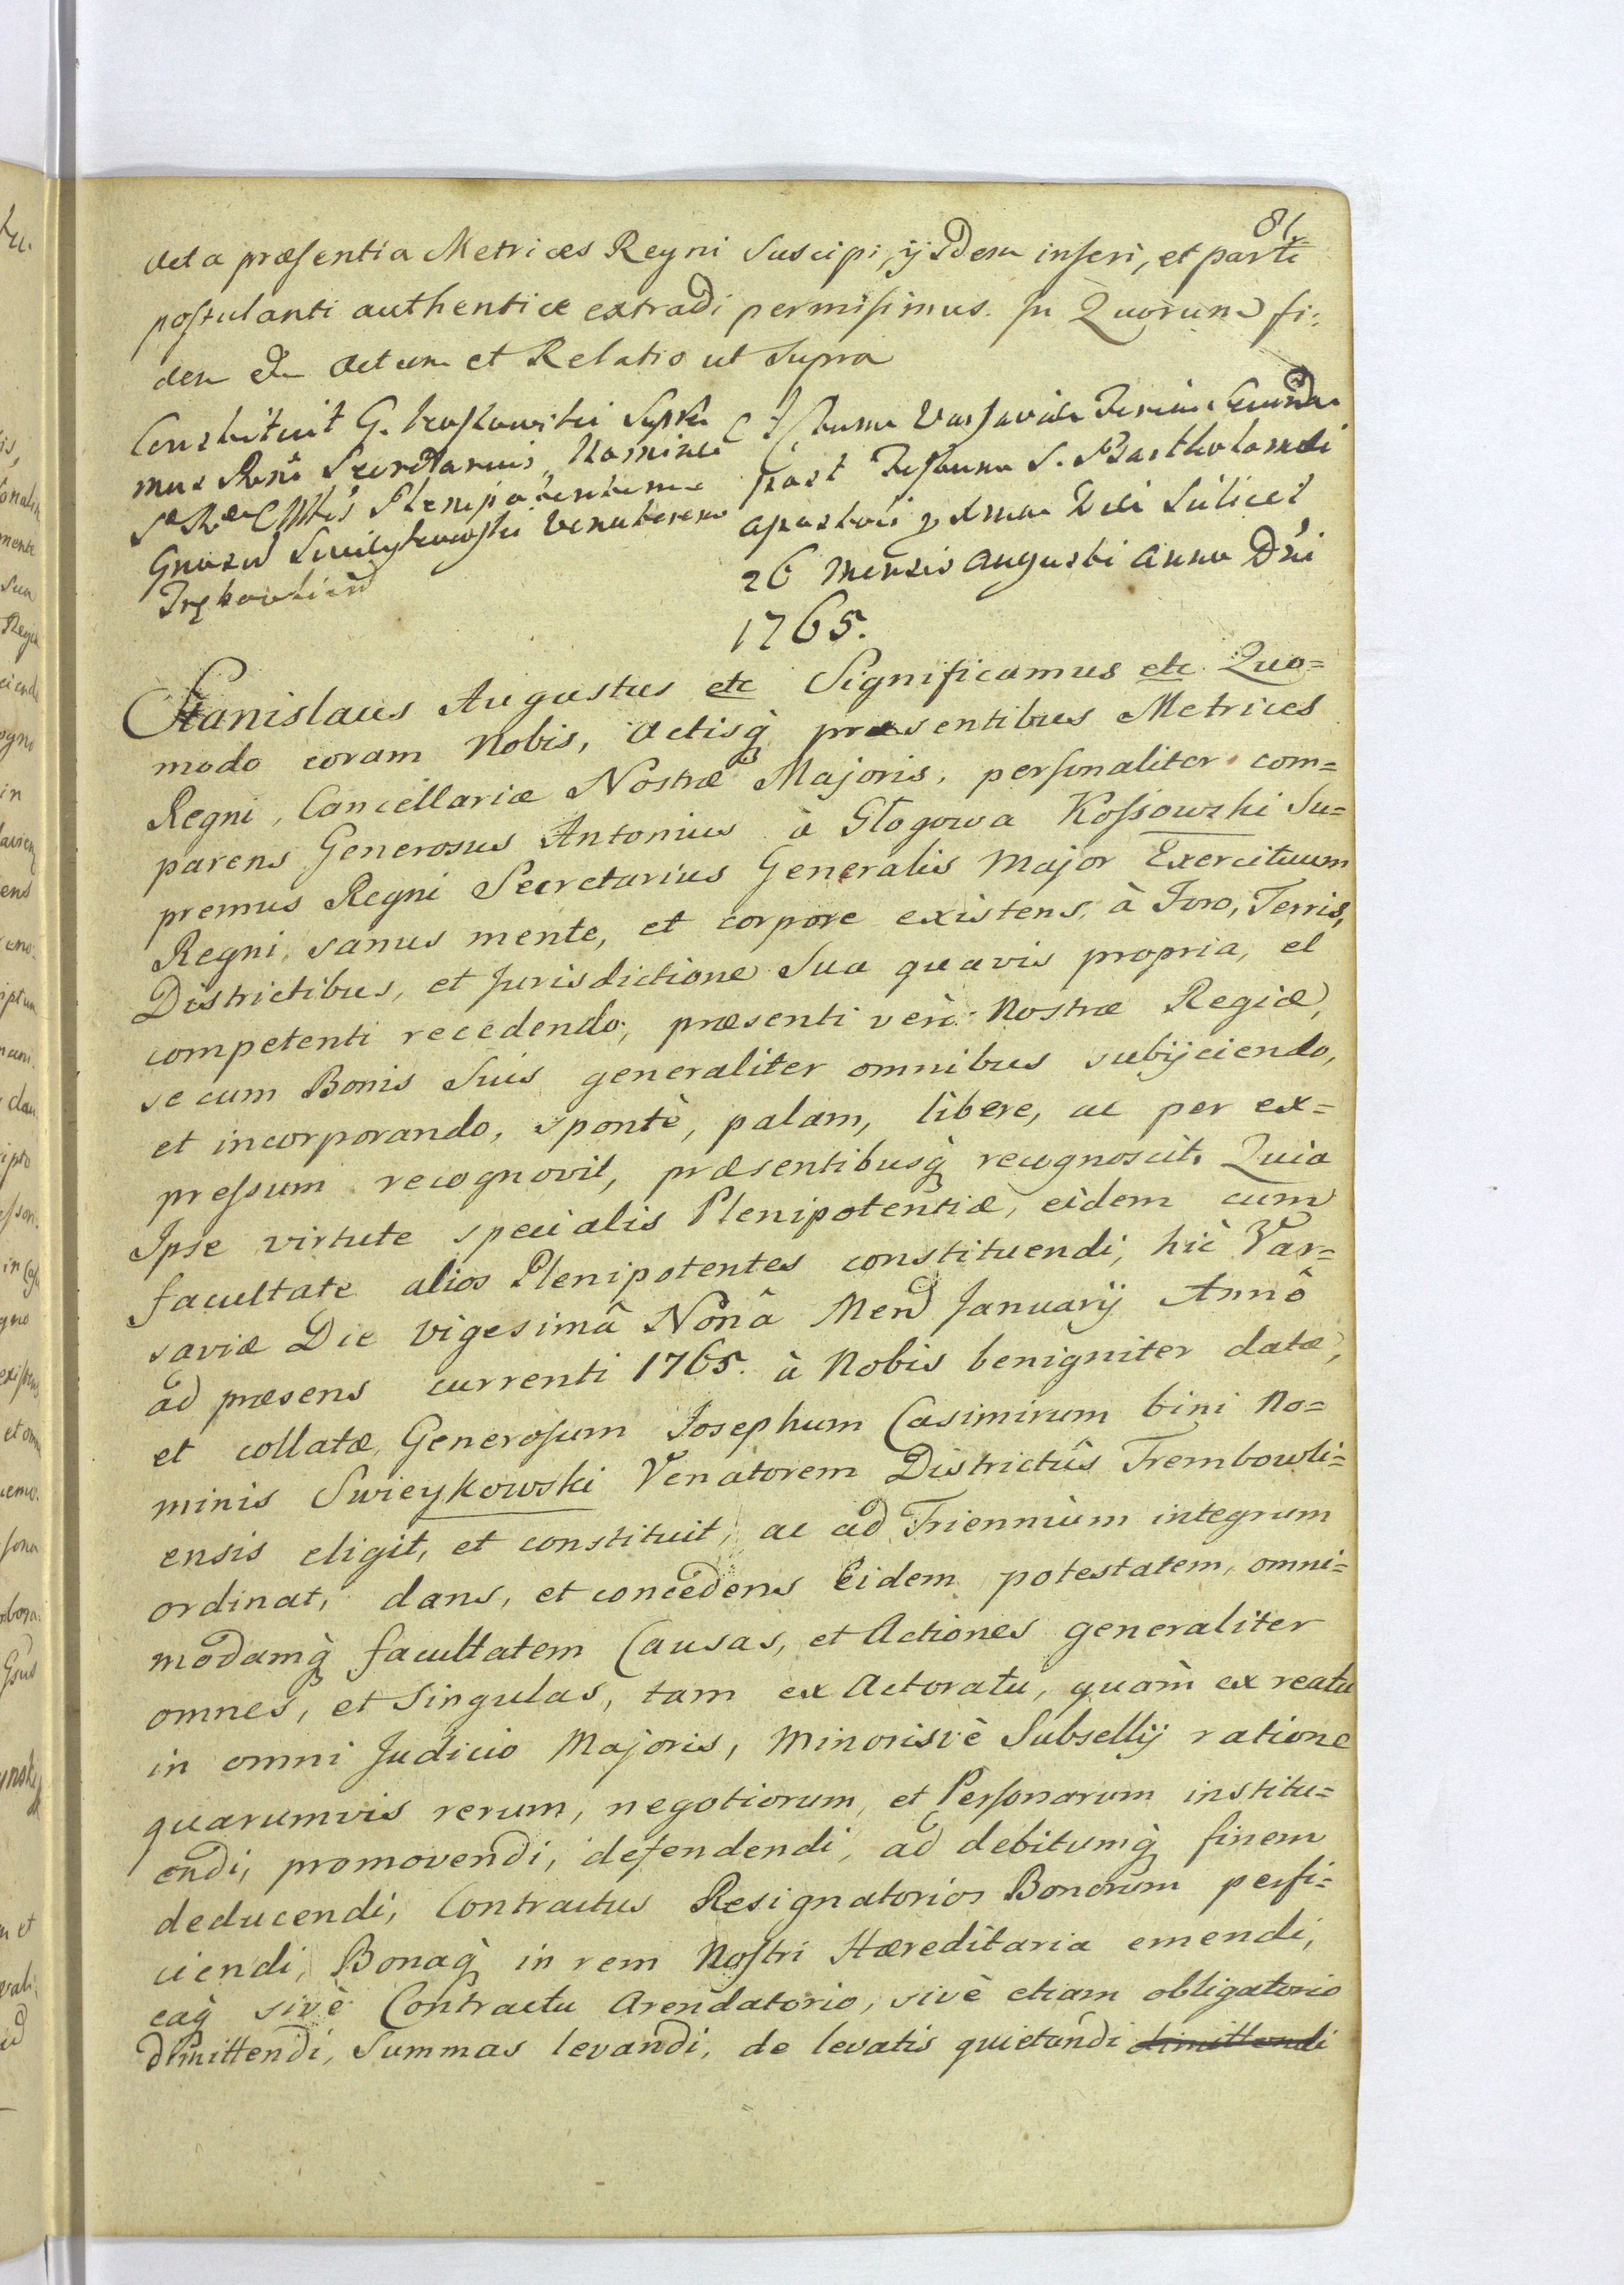 81.
Acta præsentia Metrices Regni Suscipi, ijsdem inseri, et parti
postulanti authentice extradi permisimus. In Quorum fi:
dem Actum et Relatio ut Supra
Constituit G. Kossowski Supre
mus Rni Secretarius Nomine
Plenipotentem
Gnosū Swieykowski Venatorem
Actum Varsaviæ Feria Secunda
post Festum S. Bartholomæi
Apostoli proxima Die Scilicet
26 Mensis Augusti Anno Dni
1765.
Stanislaus Augustus etc Significamus etc Quo=
modo coram Nobis, Actisq præsentibus Metrices
Regni, Cancellariæ Nostræ Majoris, personaliter com=
parens Generosus Antonius à Głogowa Kossowski Su=
premus Regni Secretarius Generalis Major Exercituum
Regni, sanus mente, et corpore existens, à Foro, Terris,
Districtibus, et Jurisdictione Sua quavis propria, et
competenti recedendo, præsenti verò Nostræ Regiæ,
se cum Bonis Suis generaliter omnibus subijciendo,
et incorporando, spontè, palam, libere, ac per ex=
pressum recognovit, præsentibusq recognoscit. Quia
Ipse virtute specialis Plenipotentiæ, eidem cum
facultate alios Plenipotentes constituendi, hic Var=
saviæ Die Vigesimâ Nonâ Mens Januarij Annô
ad præsens currenti 1765. à Nobis benigniter datæ,
et collatæ, Generosum Josephum Casimirum bini No=
minis Swieykowski Venatorem Districtûs Trembowli=
ensis eligit, et constituit, ac ad Triennium integrum
ordinat, dans, et concedens Eidem potestatem, omni=
modamq facultatem Causas, et Actiones generaliter
omnes, et Singulas, tam ex Actoratu, quàm ex reatu
in omni Judicio Majoris, Minorisvè Subsellij ratione
quarumvis rerum, negotiorum, et Personarum institu=
endi, promovendi, defendendi, ad debitumq finem
deducendi, Contractus Resignatorios Bonorum perfi=
ciendi, Bonaq in rem Nostri Hæreditaria emendi,
eaq sivè Contractu Arendatorio, sivè etiam obligatorio
dimittendi, Summas levandi, de levatis quietandi dimittendi